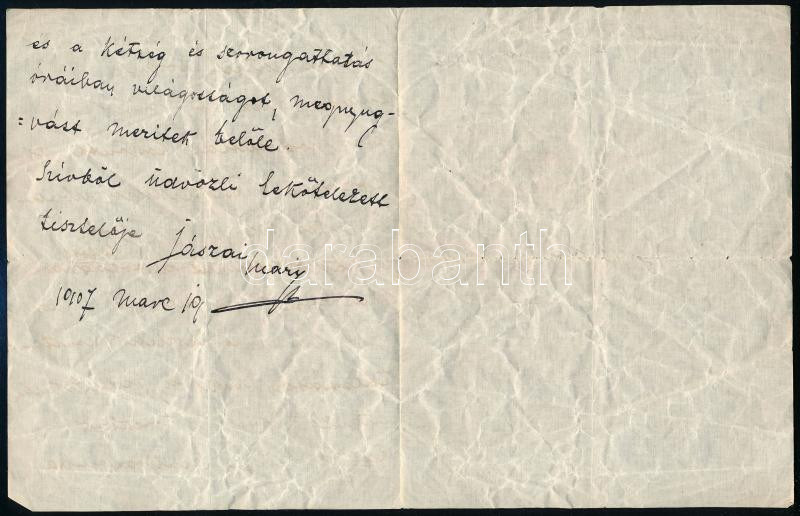 es a kétség és szorongattatás
óráiban világosságot, megnyug-
=vást meritek belőle.
Szivből üdvözli lekötelezett
tisztelője Jászai Mari
1907 marc 19
darabanth